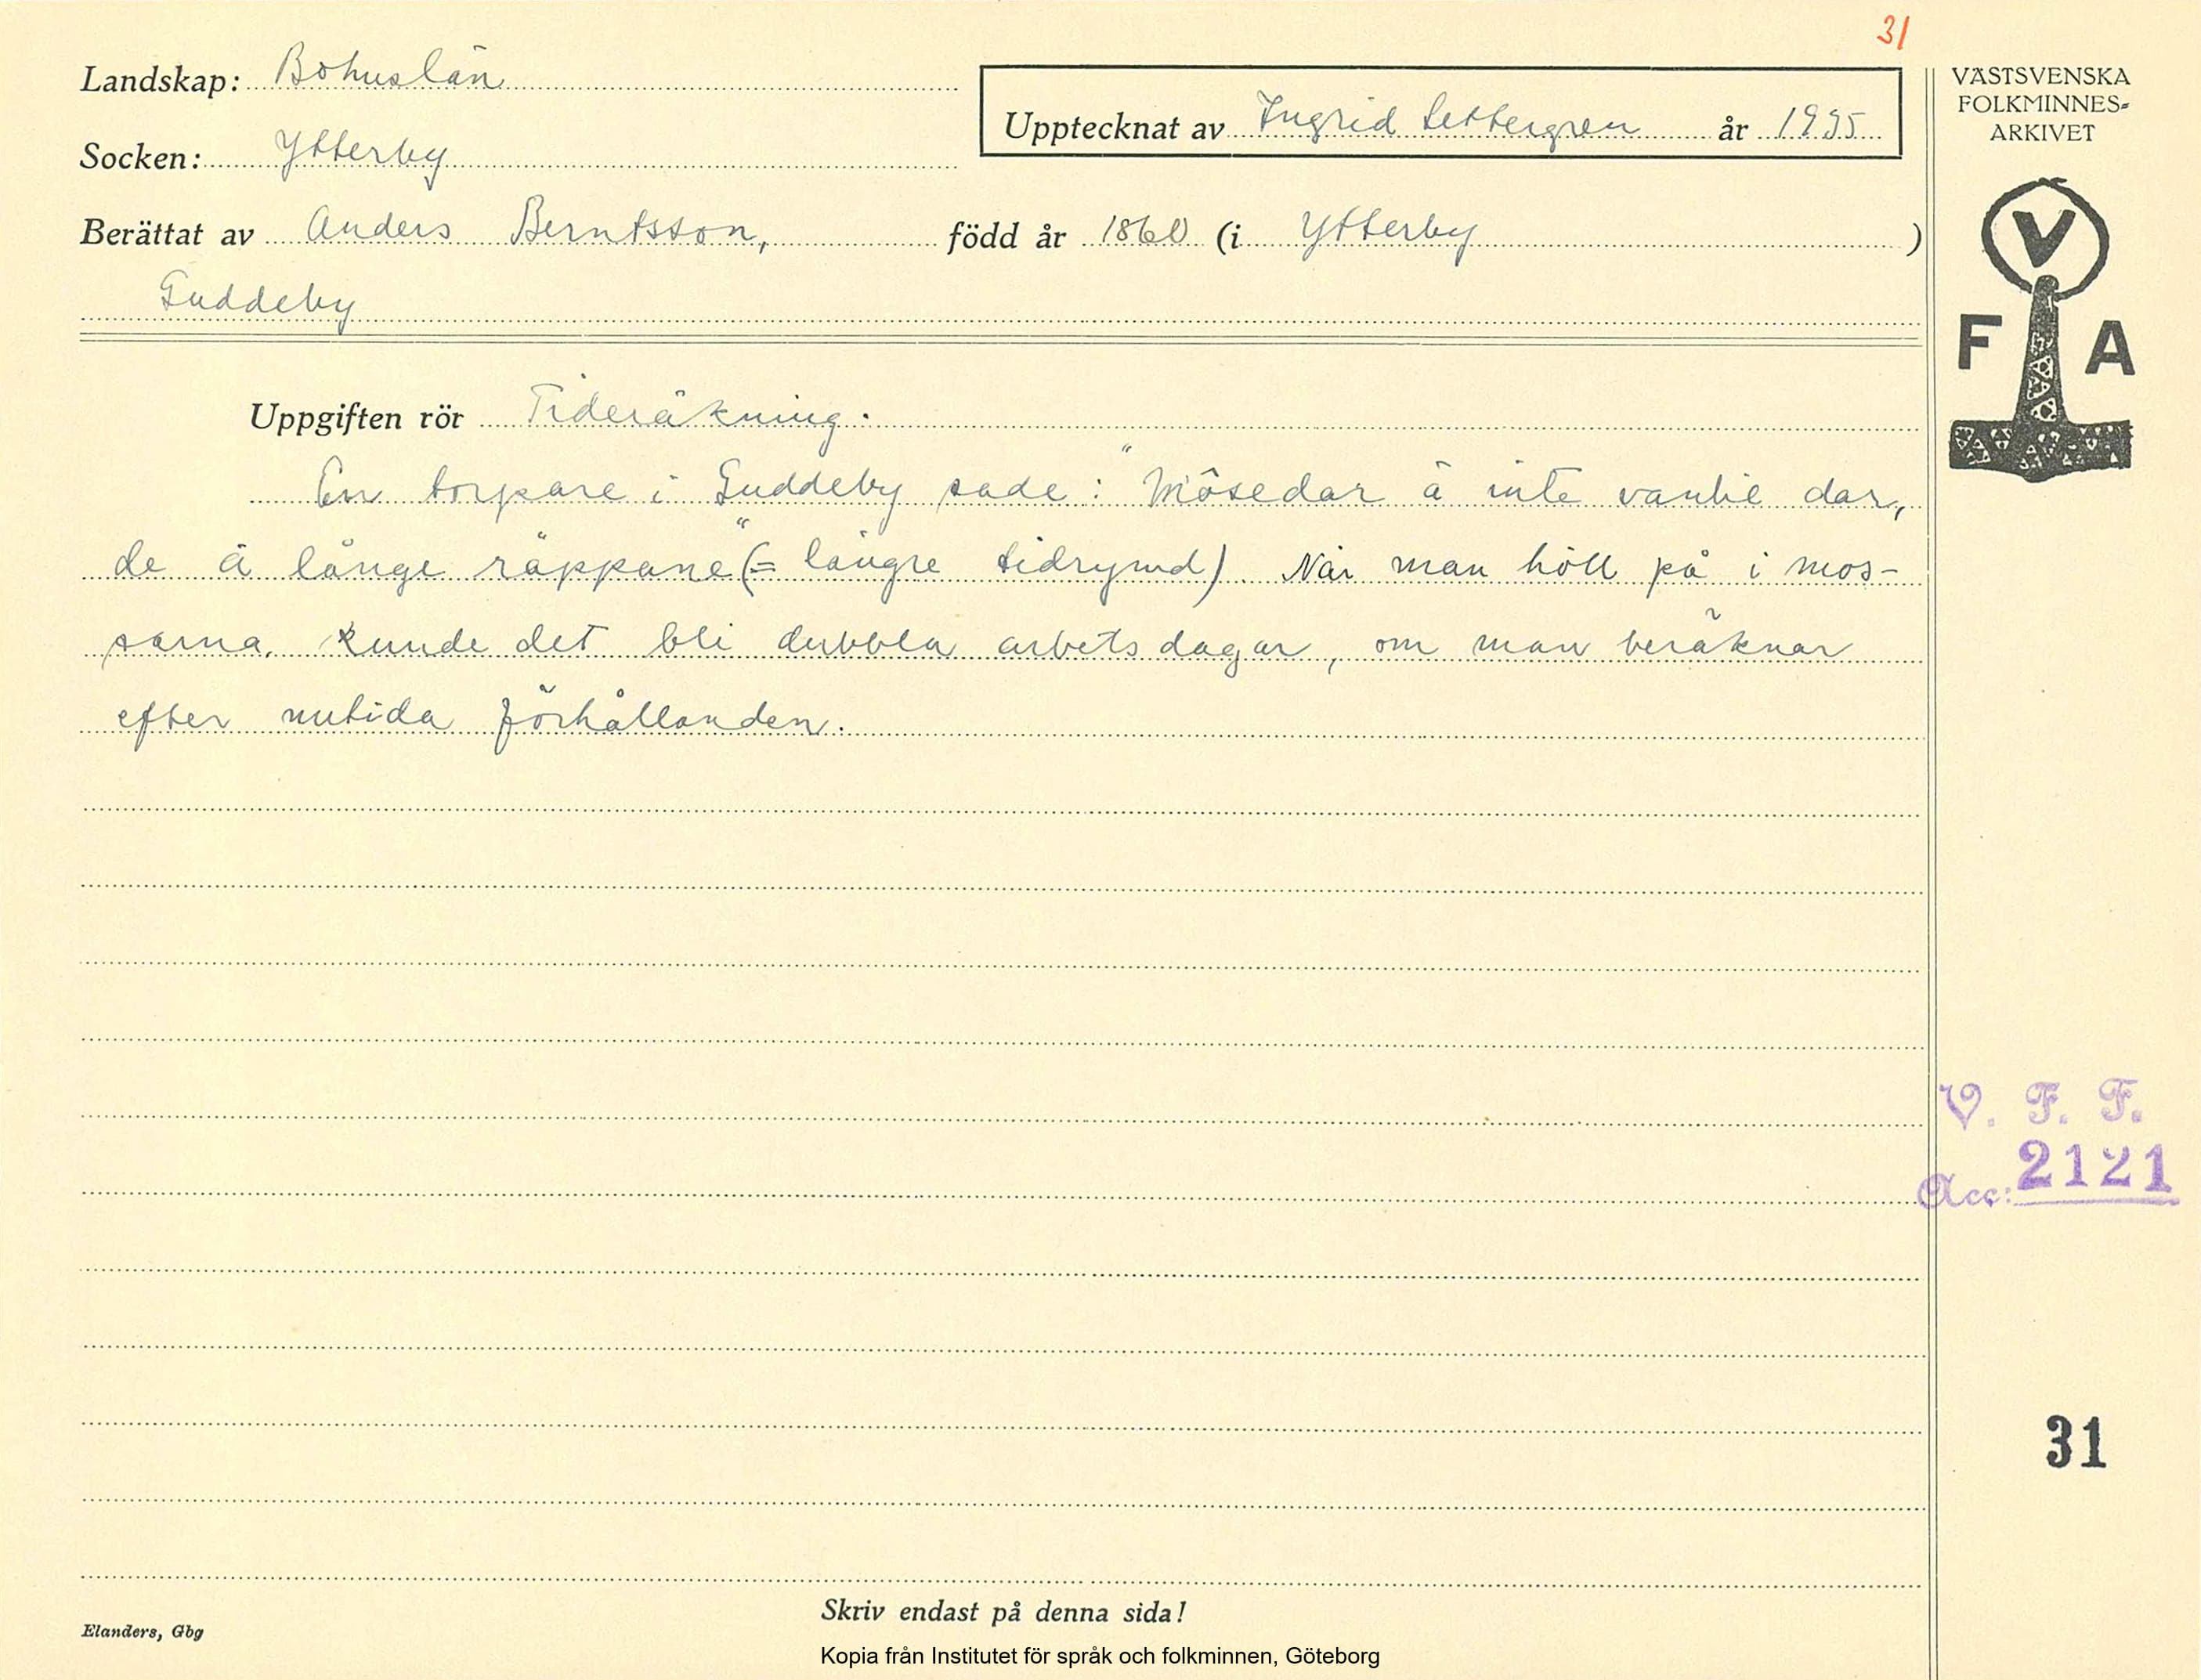 31
Landskap: Bohuslän
Upptecknat av Ingrid Settergren år 1935
Socken: Ytterby
Berättat av Anders Berntsson, född år 1860 (i Ytterby )
Guddeby
VÄSTSVENSKA
FOLKMINNES=
ARKIVET
V
F A
Uppgiften rör Tideräkning.
En torpare i Guddeby sade: "Môsedar ä inte vanlie dar,
de ä långe räppane" (= längre tidrymd). När man höll på i mos-
sarna, kunde det bli dubbla arbetsdagar, om man beräknar
efter nutida förhållanden.
V. F. F.
Acc: 2121
31
Skriv endast på denna sida!
Elanders, Gbg
Kopia från Institutet för språk och folkminnen, Göteborg